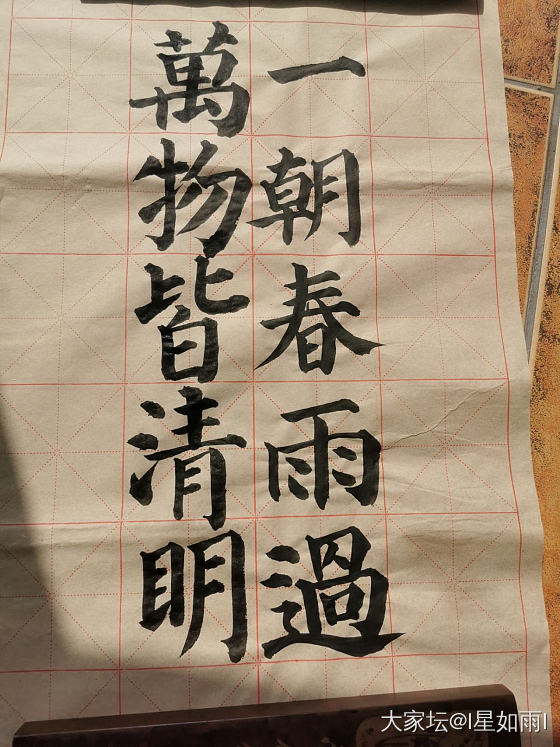 一朝春雨過
萬物皆清明
大家坛@I星如雨I